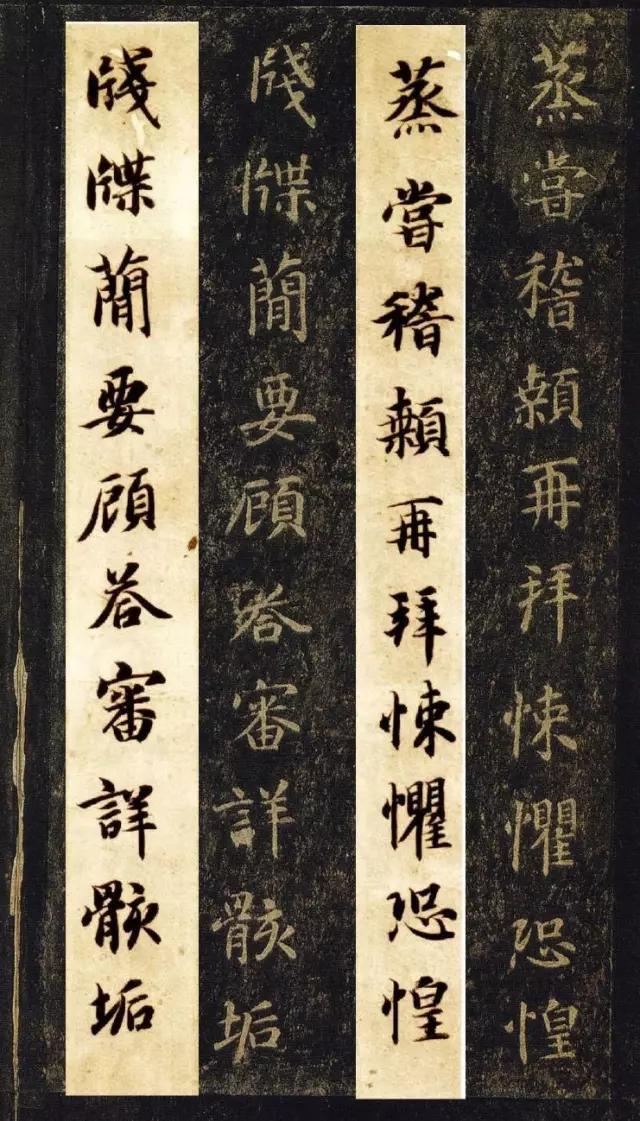 蒸嘗稽顙再拜悚懼恐惶
蒸嘗稽顙再拜悚懼恐惶
牋牒簡要顧荅審詳骸垢
牋牒簡要顧荅審詳骸垢